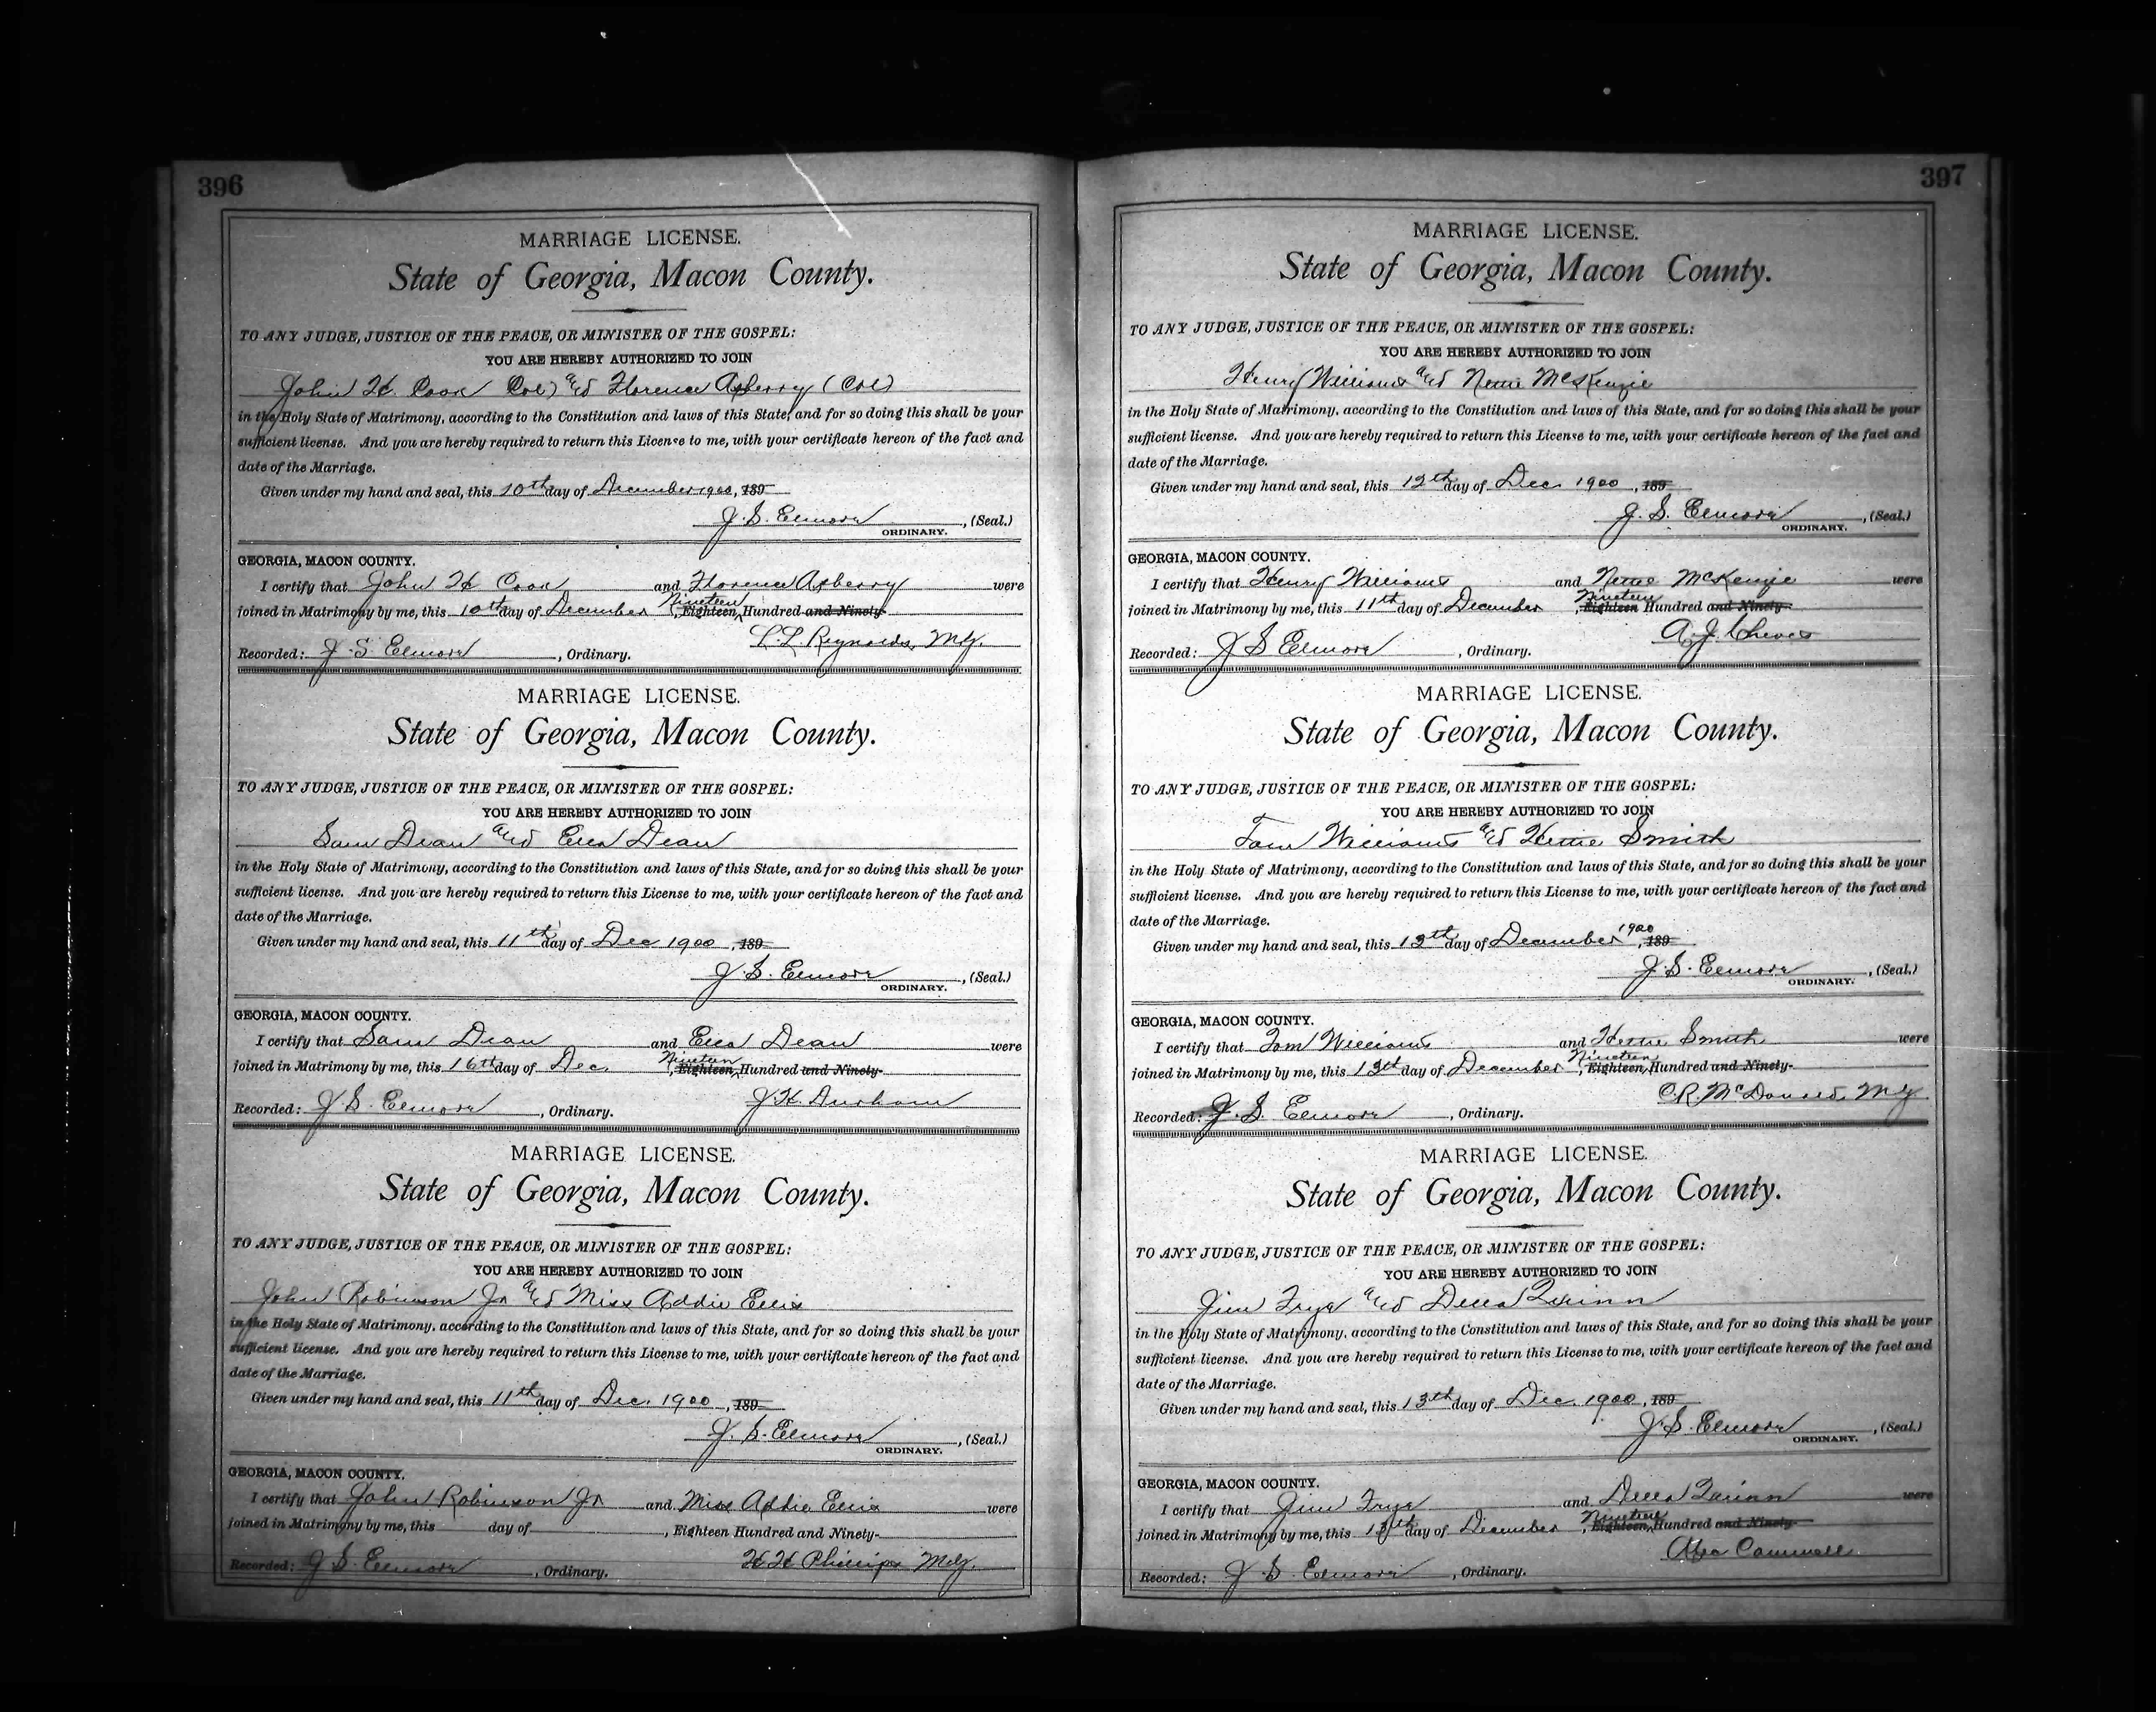 396
MARRIAGE LICENSE.
State of Georgia, Macon County.
TO ANY JUDGE, JUSTICE OF THE PEACE, OR MINISTER OF THE GOSPEL:
YOU ARE HEREBY AUTHORIZED TO JOIN
John H. Cook (Col) and Florence Asberry (Col)
in the Holy State of Matrimony, according to the Constitution and laws of this State, and for so doing this shall be your
sufficient license. And you are hereby required to return this License to me, with your certificate hereon of the fact and
date of the Marriage.
Given under my hand and seal, this 10th day of December 1900, 189
J. S. Elmore, (Seal.)
ORDINARY.
GEORGIA, MACON COUNTY.
I certify that John H Cook and Florence Asberry were
joined in Matrimony by me, this 10th day of December Nineteen, Eighteen Hundred and Ninety-
L. L. Reynolds, Mg.
Recorded: J. S. Elmore, Ordinary.
MARRIAGE LICENSE.
State of Georgia, Macon County.
TO ANY JUDGE, JUSTICE OF THE PEACE, OR MINISTER OF THE GOSPEL:
YOU ARE HEREBY AUTHORIZED TO JOIN
Sam Dean and Ella Dean
in the Holy State of Matrimony, according to the Constitution and laws of this State, and for so doing this shall be your
sufficient license. And you are hereby required to return this License to me, with your certificate hereon of the fact and
date of the Marriage.
Given under my hand and seal, this 11th day of Dec 1900, 189
J. S. Elmore, (Seal.)
ORDINARY.
GEORGIA, MACON COUNTY.
I certify that Sam Dean and Ella Dean were
joined in Matrimony by me, this 16th day of Dec. Nineteen, Eighteen Hundred and Ninety-
Recorded: J. S. Elmore, Ordinary. J. K. Durham
MARRIAGE LICENSE.
State of Georgia, Macon County.
TO ANY JUDGE, JUSTICE OF THE PEACE, OR MINISTER OF THE GOSPEL:
YOU ARE HEREBY AUTHORIZED TO JOIN
John Robinson Jr and Miss Addie Ellis
in the Holy State of Matrimony, according to the Constitution and laws of this State, and for so doing this shall be your
sufficient license. And you are hereby required to return this License to me, with your certificate hereon of the fact and
date of the Marriage.
Given under my hand and seal, this 11th day of Dec. 1900, 189
J. S. Elmore, (Seal.)
ORDINARY.
GEORGIA, MACON COUNTY.
I certify that John Robinson Jr and Miss Addie Ellis were
joined in Matrimony by me, this day of , Eighteen Hundred and Ninety-
Recorded: J. S. Elmore, Ordinary. H H Phillips Mg.
397
MARRIAGE LICENSE.
State of Georgia, Macon County.
TO ANY JUDGE, JUSTICE OF THE PEACE, OR MINISTER OF THE GOSPEL:
YOU ARE HEREBY AUTHORIZED TO JOIN
Henry Williams and Nettie McKenzie
in the Holy State of Matrimony, according to the Constitution and laws of this State, and for so doing this shall be your
sufficient license. And you are hereby required to return this License to me, with your certificate hereon of the fact and
date of the Marriage.
Given under my hand and seal, this 12th day of Dec. 1900, 189
J. S. Elmore, (Seal.)
ORDINARY.
GEORGIA, MACON COUNTY.
I certify that Henry Williams and Nettie McKenzie were
joined in Matrimony by me, this 11th day of December Nineteen, Eighteen Hundred and Ninety-
A. J. Cheves
Recorded: J S Elmore, Ordinary.
MARRIAGE LICENSE.
State of Georgia, Macon County.
TO ANY JUDGE, JUSTICE OF THE PEACE, OR MINISTER OF THE GOSPEL:
YOU ARE HEREBY AUTHORIZED TO JOIN
Tom Williams and Hettie Smith
in the Holy State of Matrimony, according to the Constitution and laws of this State, and for so doing this shall be your
sufficient license. And you are hereby required to return this License to me, with your certificate hereon of the fact and
date of the Marriage.
Given under my hand and seal, this 13th day of December 1900, 189
J. S. Elmore, (Seal.)
ORDINARY.
GEORGIA, MACON COUNTY.
I certify that Tom Williams and Hettie Smith were
joined in Matrimony by me, this 13th day of December Nineteen, Eighteen Hundred and Ninety-
C. R. McDonald, Mg
Recorded: J. S. Elmore, Ordinary.
MARRIAGE LICENSE.
State of Georgia, Macon County.
TO ANY JUDGE, JUSTICE OF THE PEACE, OR MINISTER OF THE GOSPEL:
YOU ARE HEREBY AUTHORIZED TO JOIN
Jim Frye and Della Quinn
in the Holy State of Matrimony, according to the Constitution and laws of this State, and for so doing this shall be your
sufficient license. And you are hereby required to return this License to me, with your certificate hereon of the fact and
date of the Marriage.
Given under my hand and seal, this 13th day of Dec. 1900, 189
J. S. Elmore, (Seal.)
ORDINARY.
GEORGIA, MACON COUNTY.
I certify that Jim Frye and Della Quinn were
joined in Matrimony by me, this 13th day of December Nineteen, Eighteen Hundred and Ninety-
Recorded: J. S. Elmore, Ordinary.